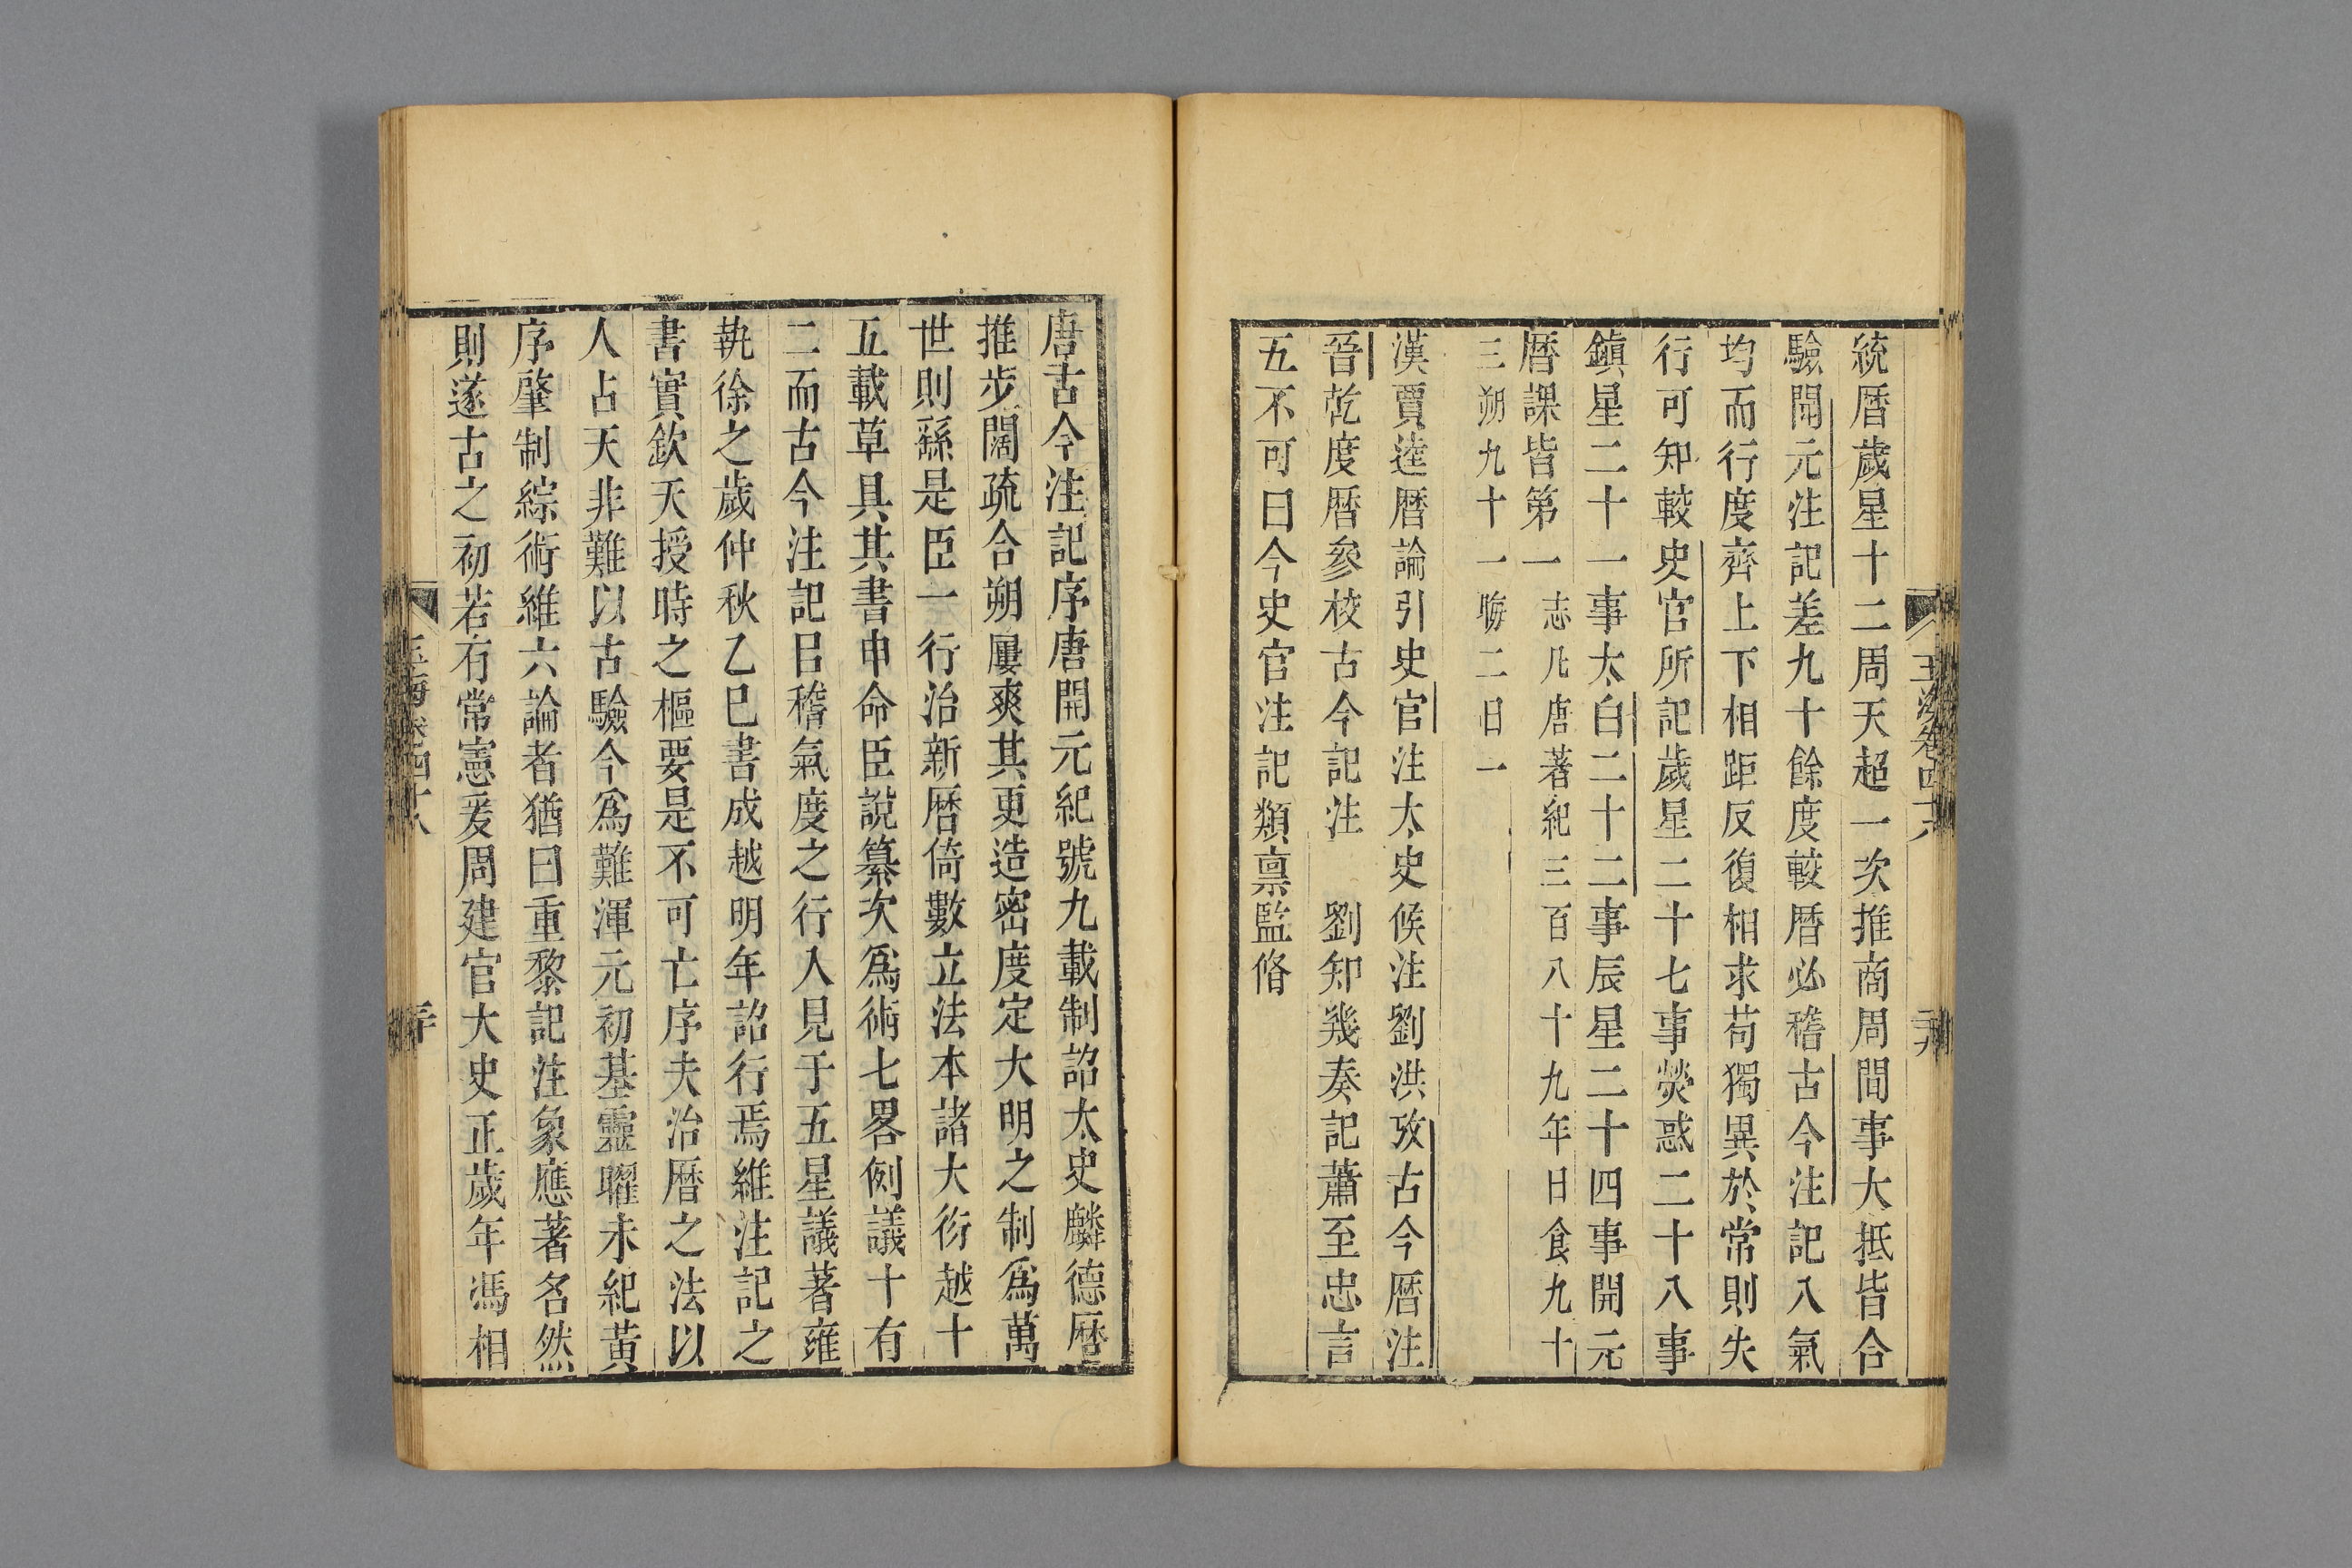 統曆歲星十二周天超一次推商周間事大抵皆合
驗開元注記差九十餘度較曆必稽古今注記入氣
均而行度齊上下相距反復相求苟獨異於常則失
行可知較史官所記歲星二十七事熒惑二十八事
鎮星二十一事太白二十二事辰星二十四事開元
曆課皆第一志凡唐著紀三百八十九年日食九十
三朔九十一晦二日一
漢賈逵曆論引史官注太史候注劉洪攷古今曆注
晉乾度曆參校古今記注 劉知幾奏記蕭至忠言
五不可曰今史官注記類禀監脩
玉海卷四十八
唐古今注記序唐開元紀號九載制詔太史麟德曆
推步闊疏合朔屢爽其更造密度定大明之制爲萬
世則繇是臣一行治新曆倚數立法本諸大衍越十
五載草具其書申命臣說纂次爲術七畧例議十有
二而古今注記㠯稽氣度之行入見于五星議著雍
執徐之歲仲秋乙巳書成越明年詔行焉維注記之
書實欽天授時之樞要是不可亡序夫治曆之法以
人占天非難以古驗今爲難渾元初基靈曜未紀黃
序肇制綜術維六論者猶曰重黎記注象應著名然
則遂古之初若有常憲爰周建官大史正歲年馮相
玉海卷四十八